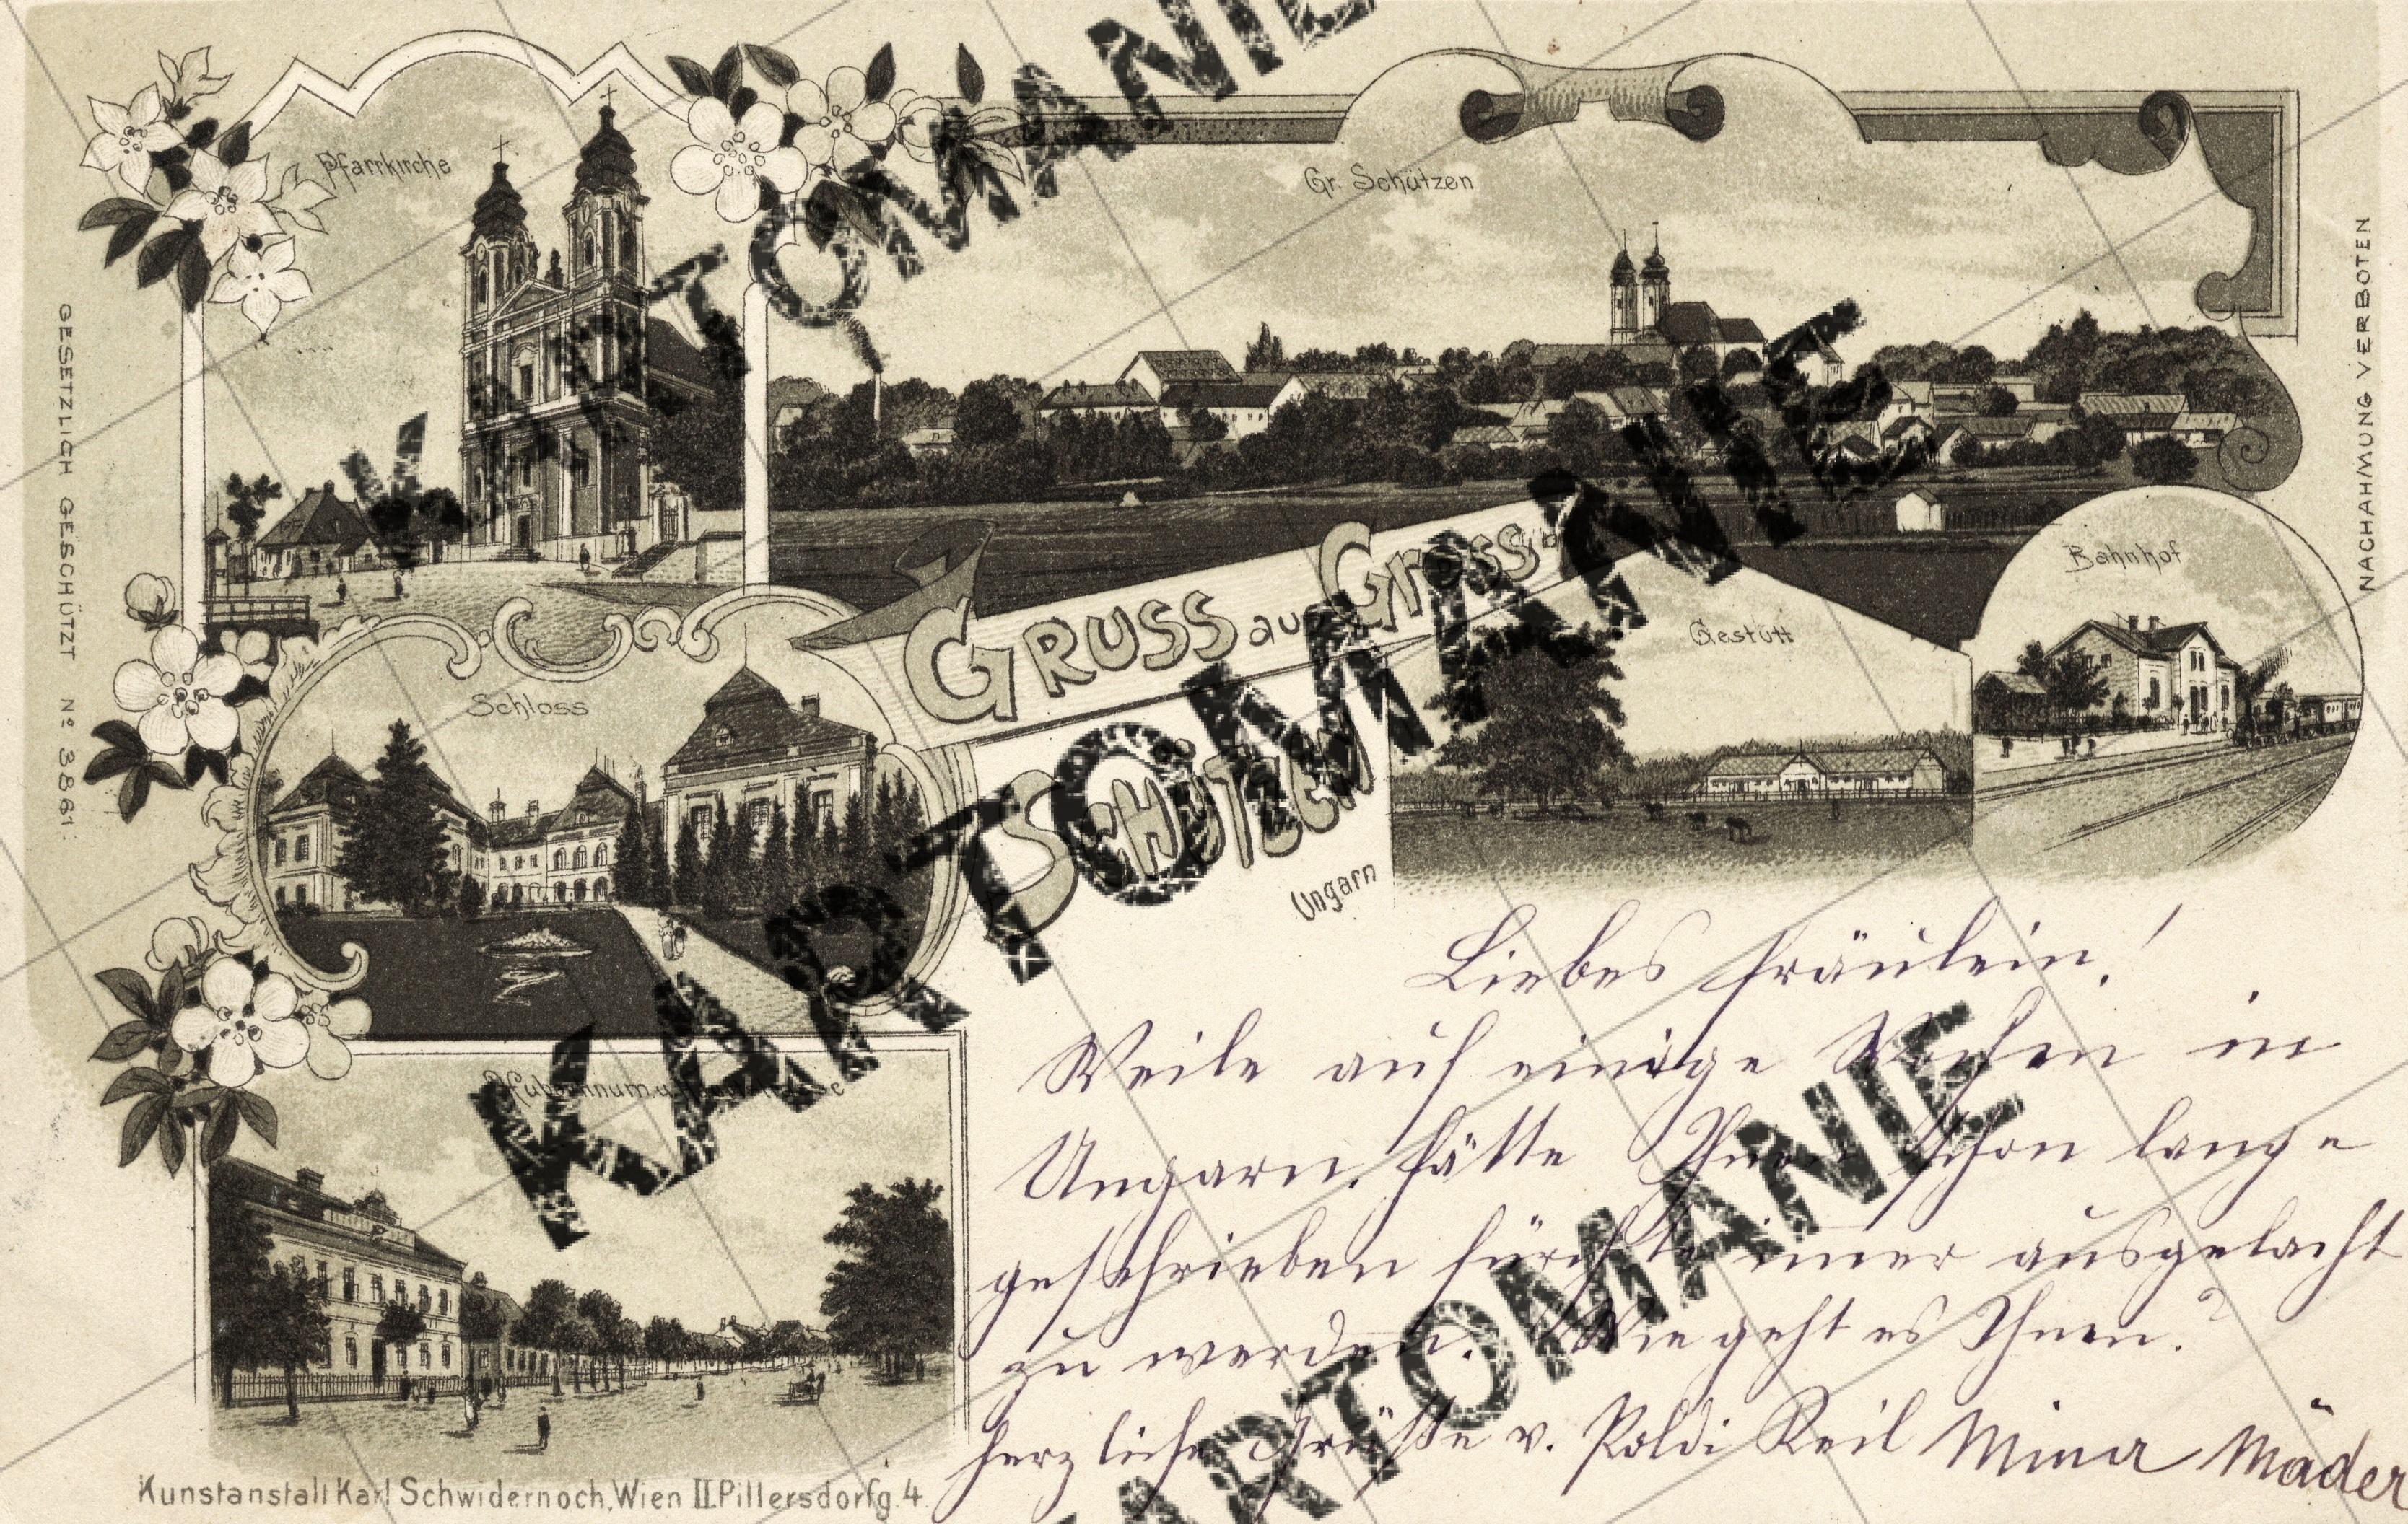 Pfarrkirche
Gr. Schützen
Bahnhof
Gestütt
Schloss
GRUSS aus Gross
SCHÜTZEN
Ungarn
GESETZLICH GESCHÜTZT No 3861.
NACHAHMUNG VERBOTEN
Liebes Fräulein!
Weile auf einige Wochen in
Ungarn, hätte Ihnen schon lange
geschrieben fürchte immer ausgelacht
zu werden. Wie geht es Ihnen?
herzliche Grüße v. Poldi Keil Mina Mäder
Kunstanstalt Karl Schwidernoch, Wien II. Pillersdorfg. 4
KARTOMANIE
KARTOMANIE
KARTOMANIE